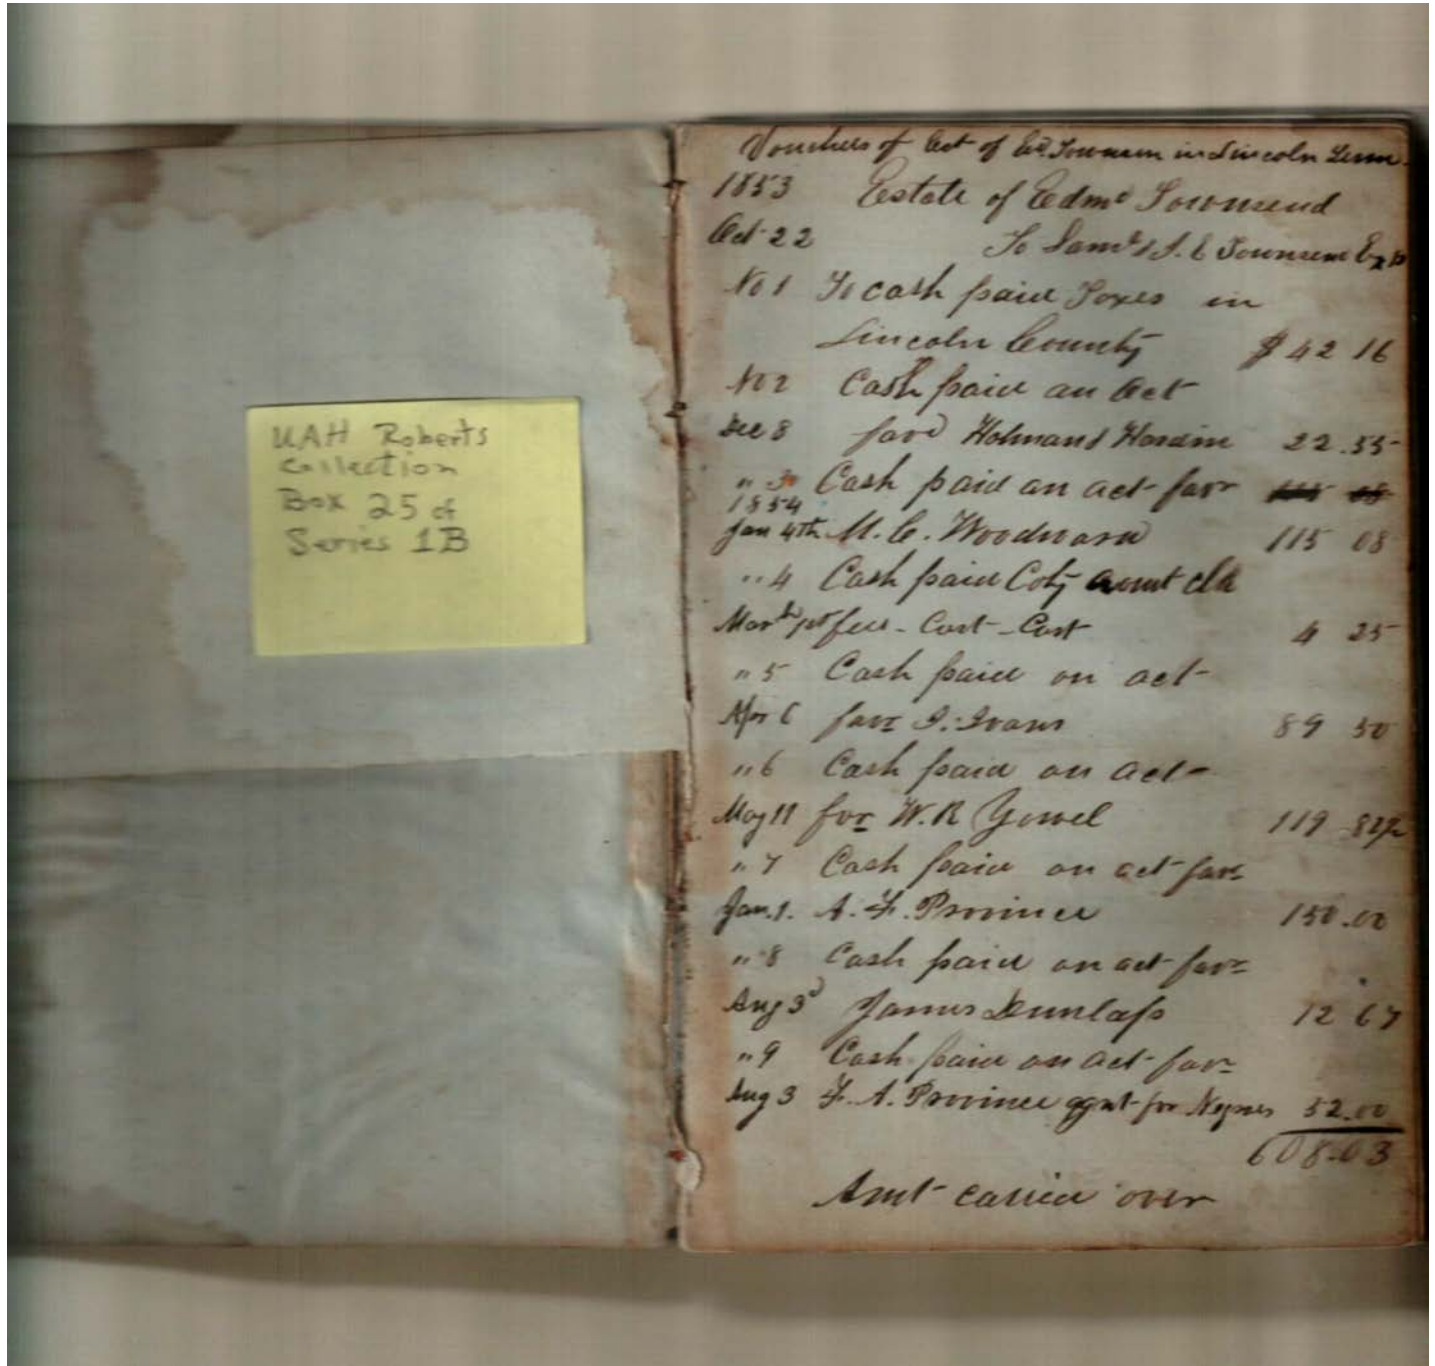 UAH Roberts
Collection
Box 25 of
Series 1B
Vouchers of Act of Ed. Townsen in Lincoln Tenn.
1853 Estate of Edmd Townsend
Oct 22 To Saml & S. C Townsend Exrs
No 1 To cash paid Taxes in
Lincoln County $ 42 16
No 2 Cash paid an Act
Dec 8 favd Holman & Hardin 22.55
" 3 Cash paid an act favr
1854
Jan 4th M. C. Woodward 115 08
" 4 Cash paid Coty clk
fees - Cost - Cost 4 25
" 5 Cash paid on act
Apr 6 favr J. Evans 89 50
" 6 Cash paid on act
May 11 for W. R Yowel 119 82½
" 7 Cash paid on act favr
Jan. 1. A. F. Province 150.00
" 8 Cash paid on act favr
Aug 3d James Dunlap 12 67
" 9 Cash paid on act favr
Aug 3 F. A. Province agnt for Negroes 52.00
608.03
Amt carried over